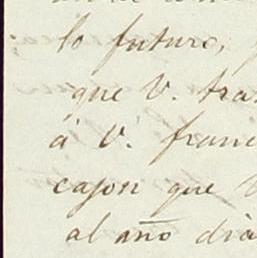 lo futuro,
que V. tra
á V. fran
cajon que V
al año dia